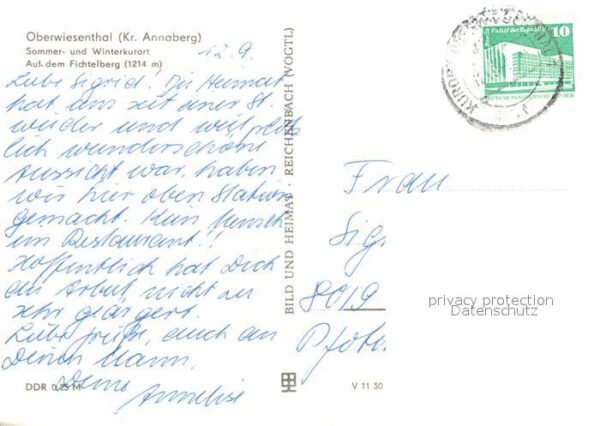 Oberwiesenthal (Kr. Annaberg)
Sommer- und Winterkurort
Auf dem Fichtelberg (1214 m)
12.9.
Liebe Sigrid! Die Heimat
hat uns seit einer St.
wieder und weil plötz
lich wunderschöne
Aussicht war, haben
wir hier oben Station
gemacht. Kein Mensch
im Restaurant!!
Hoffentlich hat Dich
die Arbeit nicht zu
sehr geärgert.
Liebe Grüße, auch an
Deinen Mann,
Deine
Annelise
DDR 0,25 M
BILD UND HEIMAT · REICHENBACH (VOGTL)
V 11 50
Berlin, Palast der Republik
10
KURORT
Frau
Sig
8019
privacy protection
Datenschutz